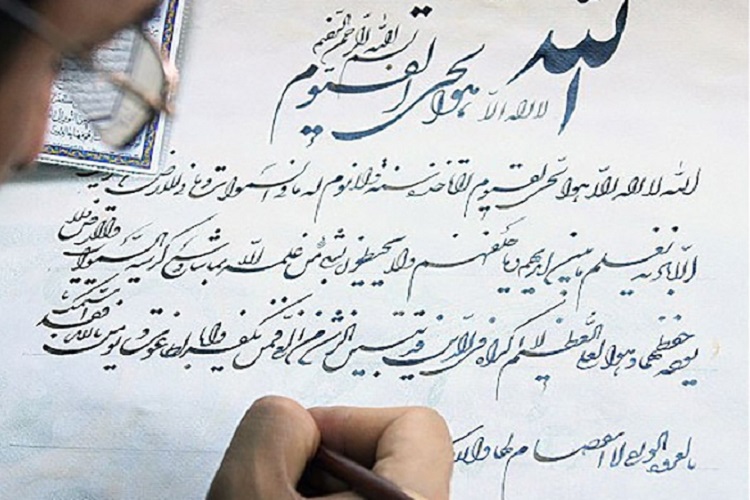 بسم الله الرحمن الرحیم
الله لا اله الا هو الحی القیوم
الله لا اله الا هو الحی القیوم لا تاخذه سنة ولا نوم له ما فی السموات و ما فی الارض
الا باذنه یعلم ما بین ایدیهم و ما خلفهم ولا یحیطون بشیء من علمه الا بما شاء وسع کرسیه السموات والارض ولا
یوده حفظهما و هو العلی العظیم لا اکراه فی الدین قد تبین الرشد من الغی فمن یکفر بالطاغوت و یومن بالله فقد استمسک
بالعروة الوثقی لا انفصام لها والله